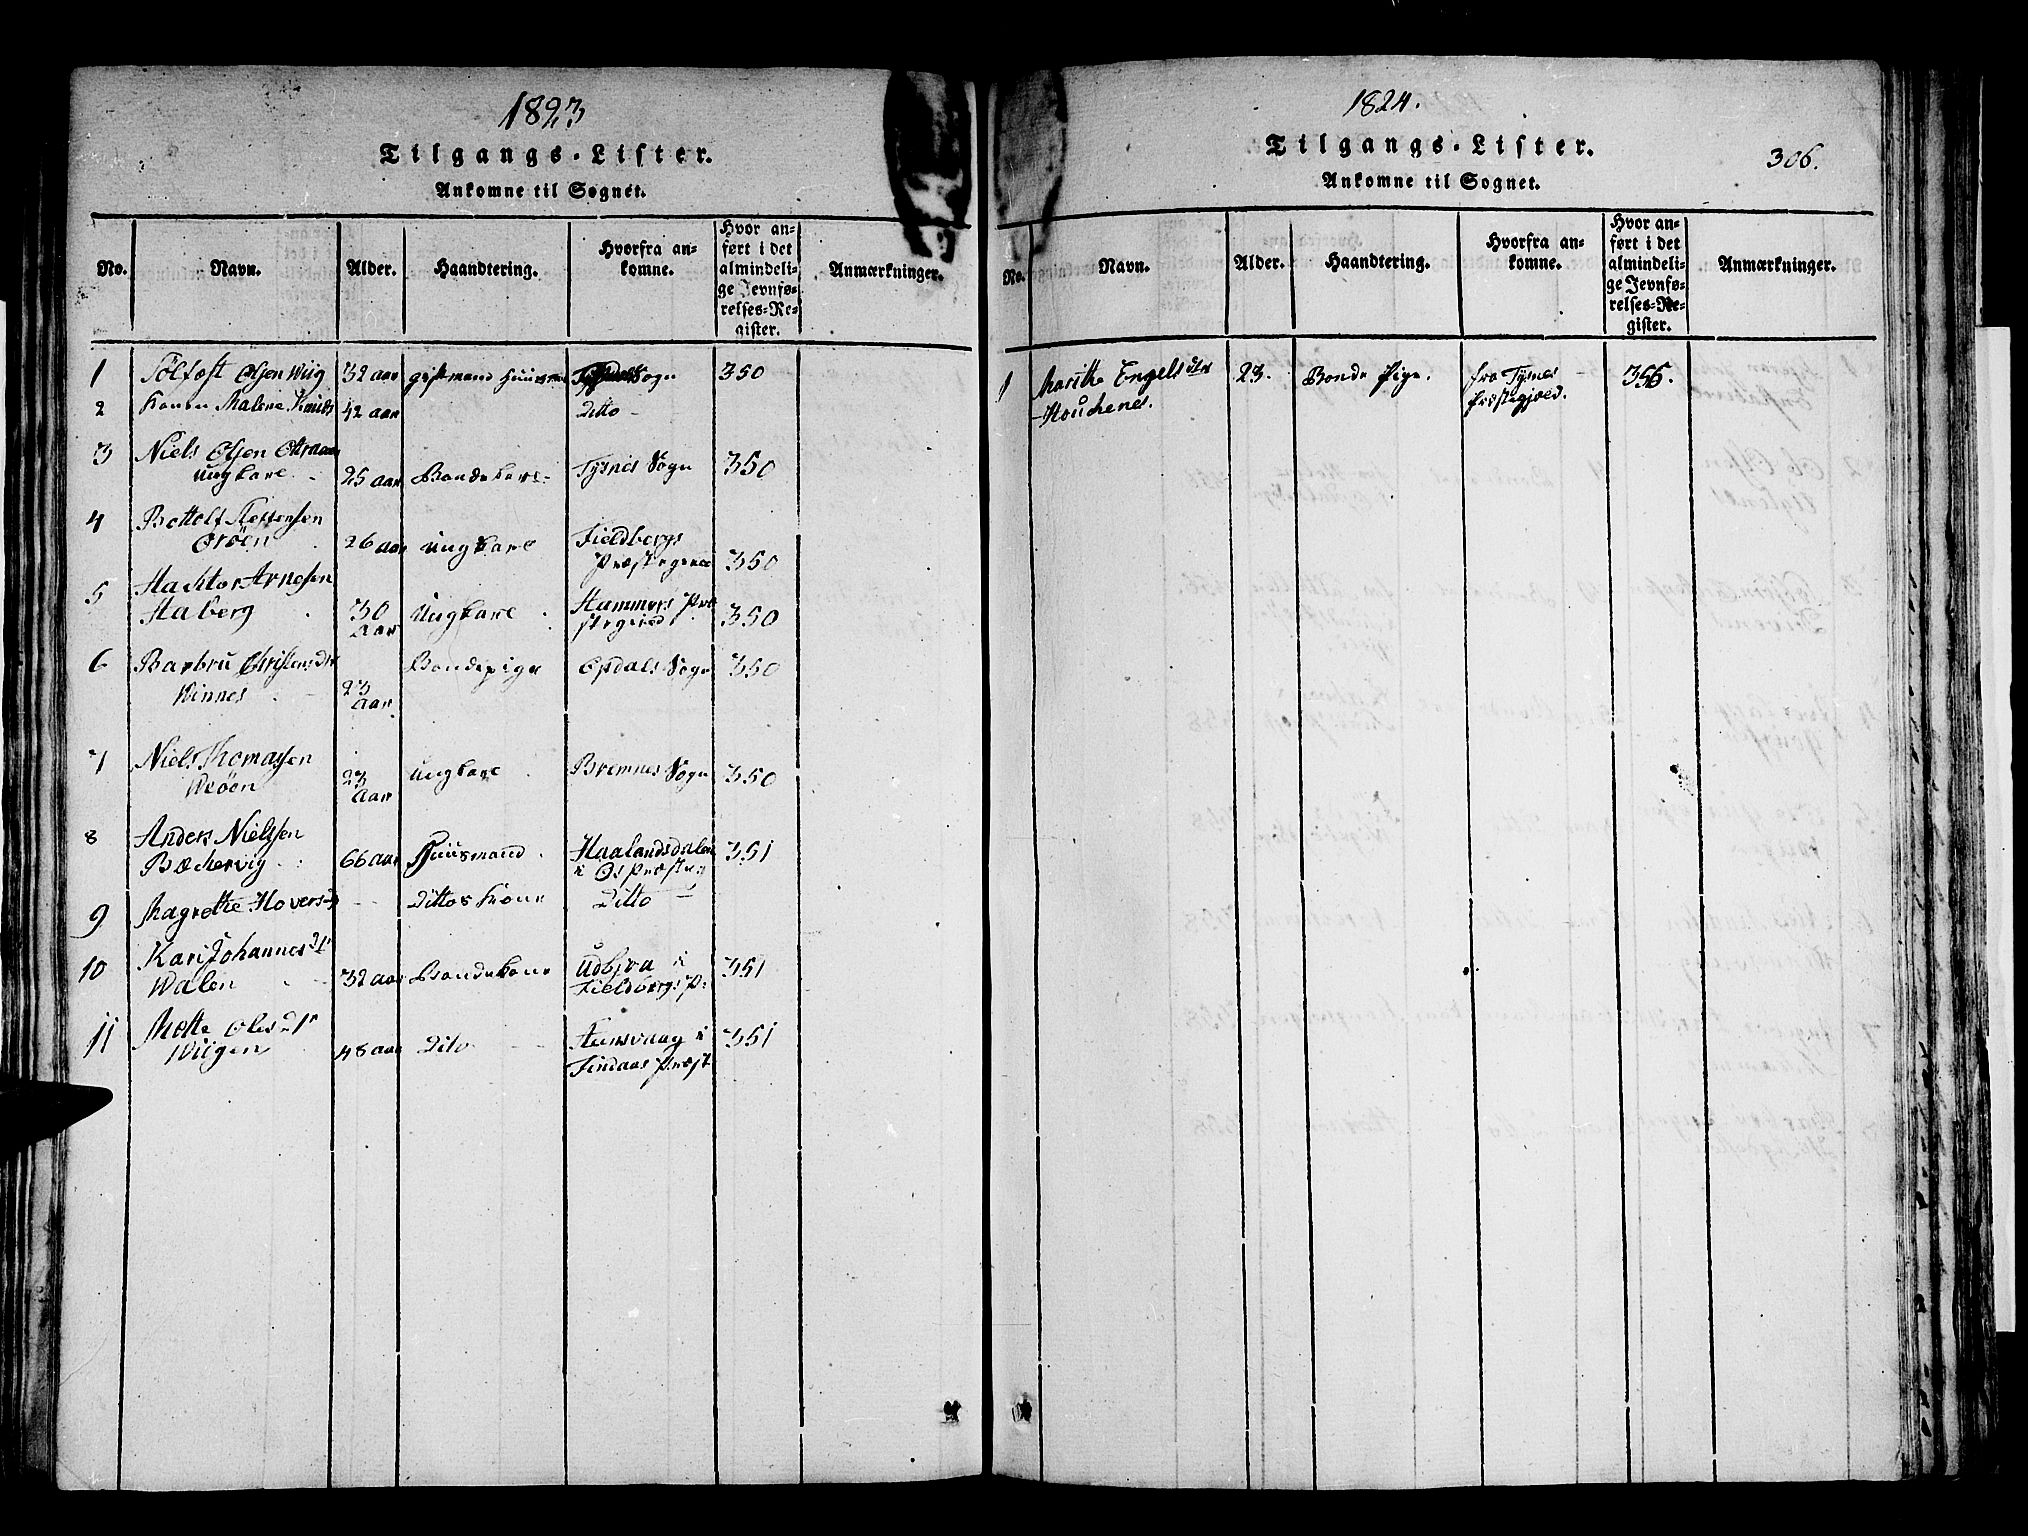 1823
Tilgangs-Lister.
Ankomne til Sognet.
No. Navn. Alder. Haandtering. Hvorfra ankomne. Hvor anført i det almindelige Jevnførelses-Register. Anmærkninger.
1 Tölfæst Olsen Wiig 32 aar giftmand Huusmand Sogn 350
2 konen Malene Knuds 42 aar Ditto
3 Niels Olsen
ungkare 25 aar Bondekare Tysnes Sogn 350
4 Bottolf Tostensen
Øröen 26 aar ungkare Fieldbergs
Præstegield 350
5 Hacktor Arnesen
Haberg 30 Aar Ungkare Hammers Præ
stegield 350
6 Barbru Christensdr
Winnes 23 Aar Bondepige Opdals Sogn 350
7 Niels Thomassen
Weöen 23 Aar ungkare Bremnes Sogn 350
8 Anders Nielssen
Bæchervig 66 aar Huusmand Haalandsdalen
i Os Præsteg: 351
9 Magrethe Hovers Dittos kone Ditto
10 Kari Johannes dtr
Walen 32 aar Bondekone Udbjoa i
Fieldbergs P: 351
11 Mette Oles dtr
Wiigen 48 aar Dito i
Findaas Præst 351
1824.
306.
Tilgangs-Lister.
Ankomne til Sognet.
No. Navn. Alder. Haandtering. Hvorfra ankomne. Hvor anført i det almindelige Jevnførelses-Register. Anmærkninger.
1 Marithe Engels dtr 23. Bonde Pige. fra Tysnes 356.
Houchenes. Præstegjeld.